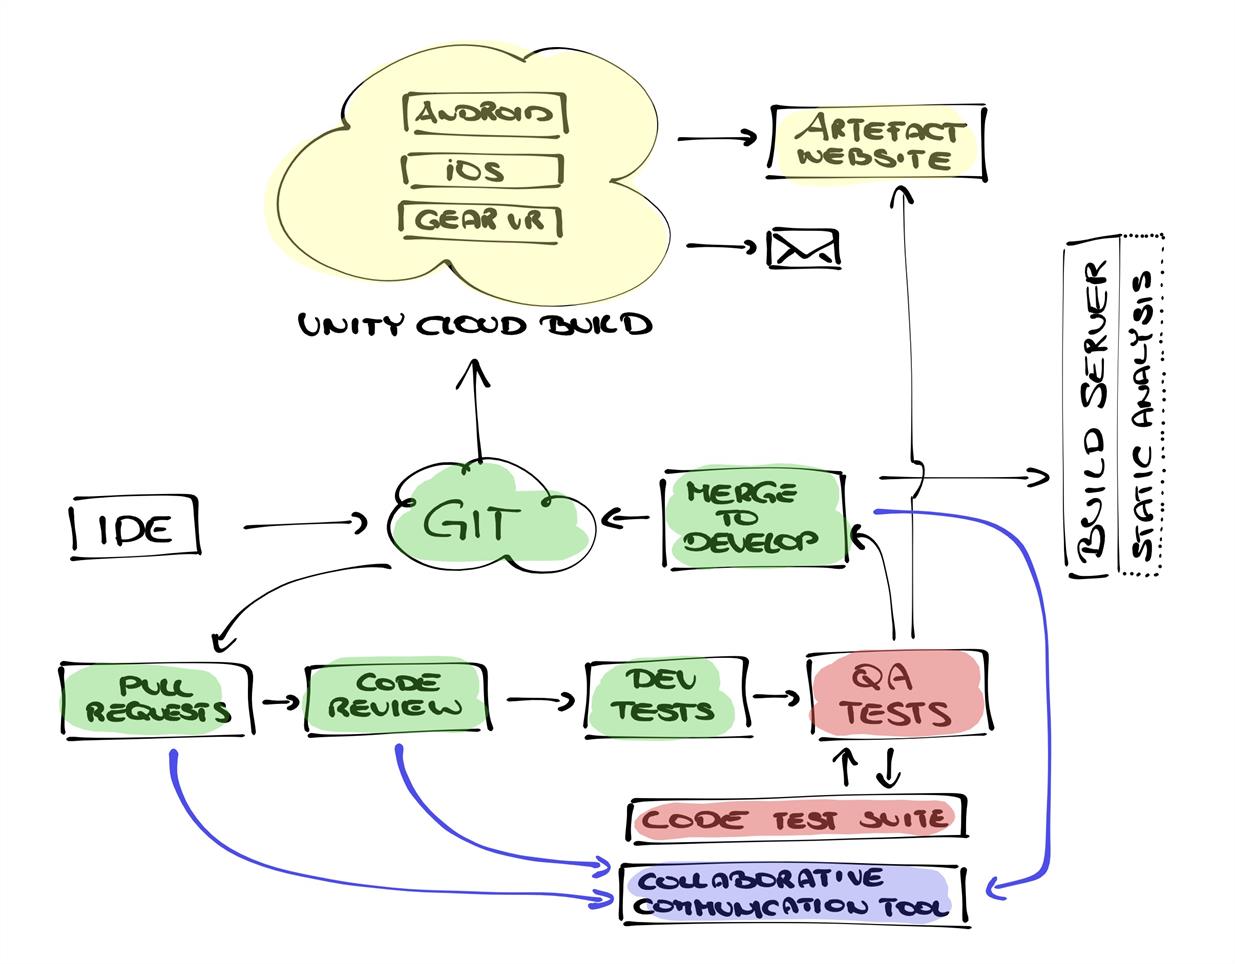 ANDROID
iOS
GEAR VR
UNITY CLOUD BUILD
ARTEFACT
WEBSITE
BUILD SERVER
STATIC ANALYSIS
IDE
GIT
MERGE
TO
DEVELOP
PULL
REQUESTS
CODE
REVIEW
DEV
TESTS
QA
TESTS
CODE TEST SUITE
COLLABORATIVE
COMMUNICATION TOOL